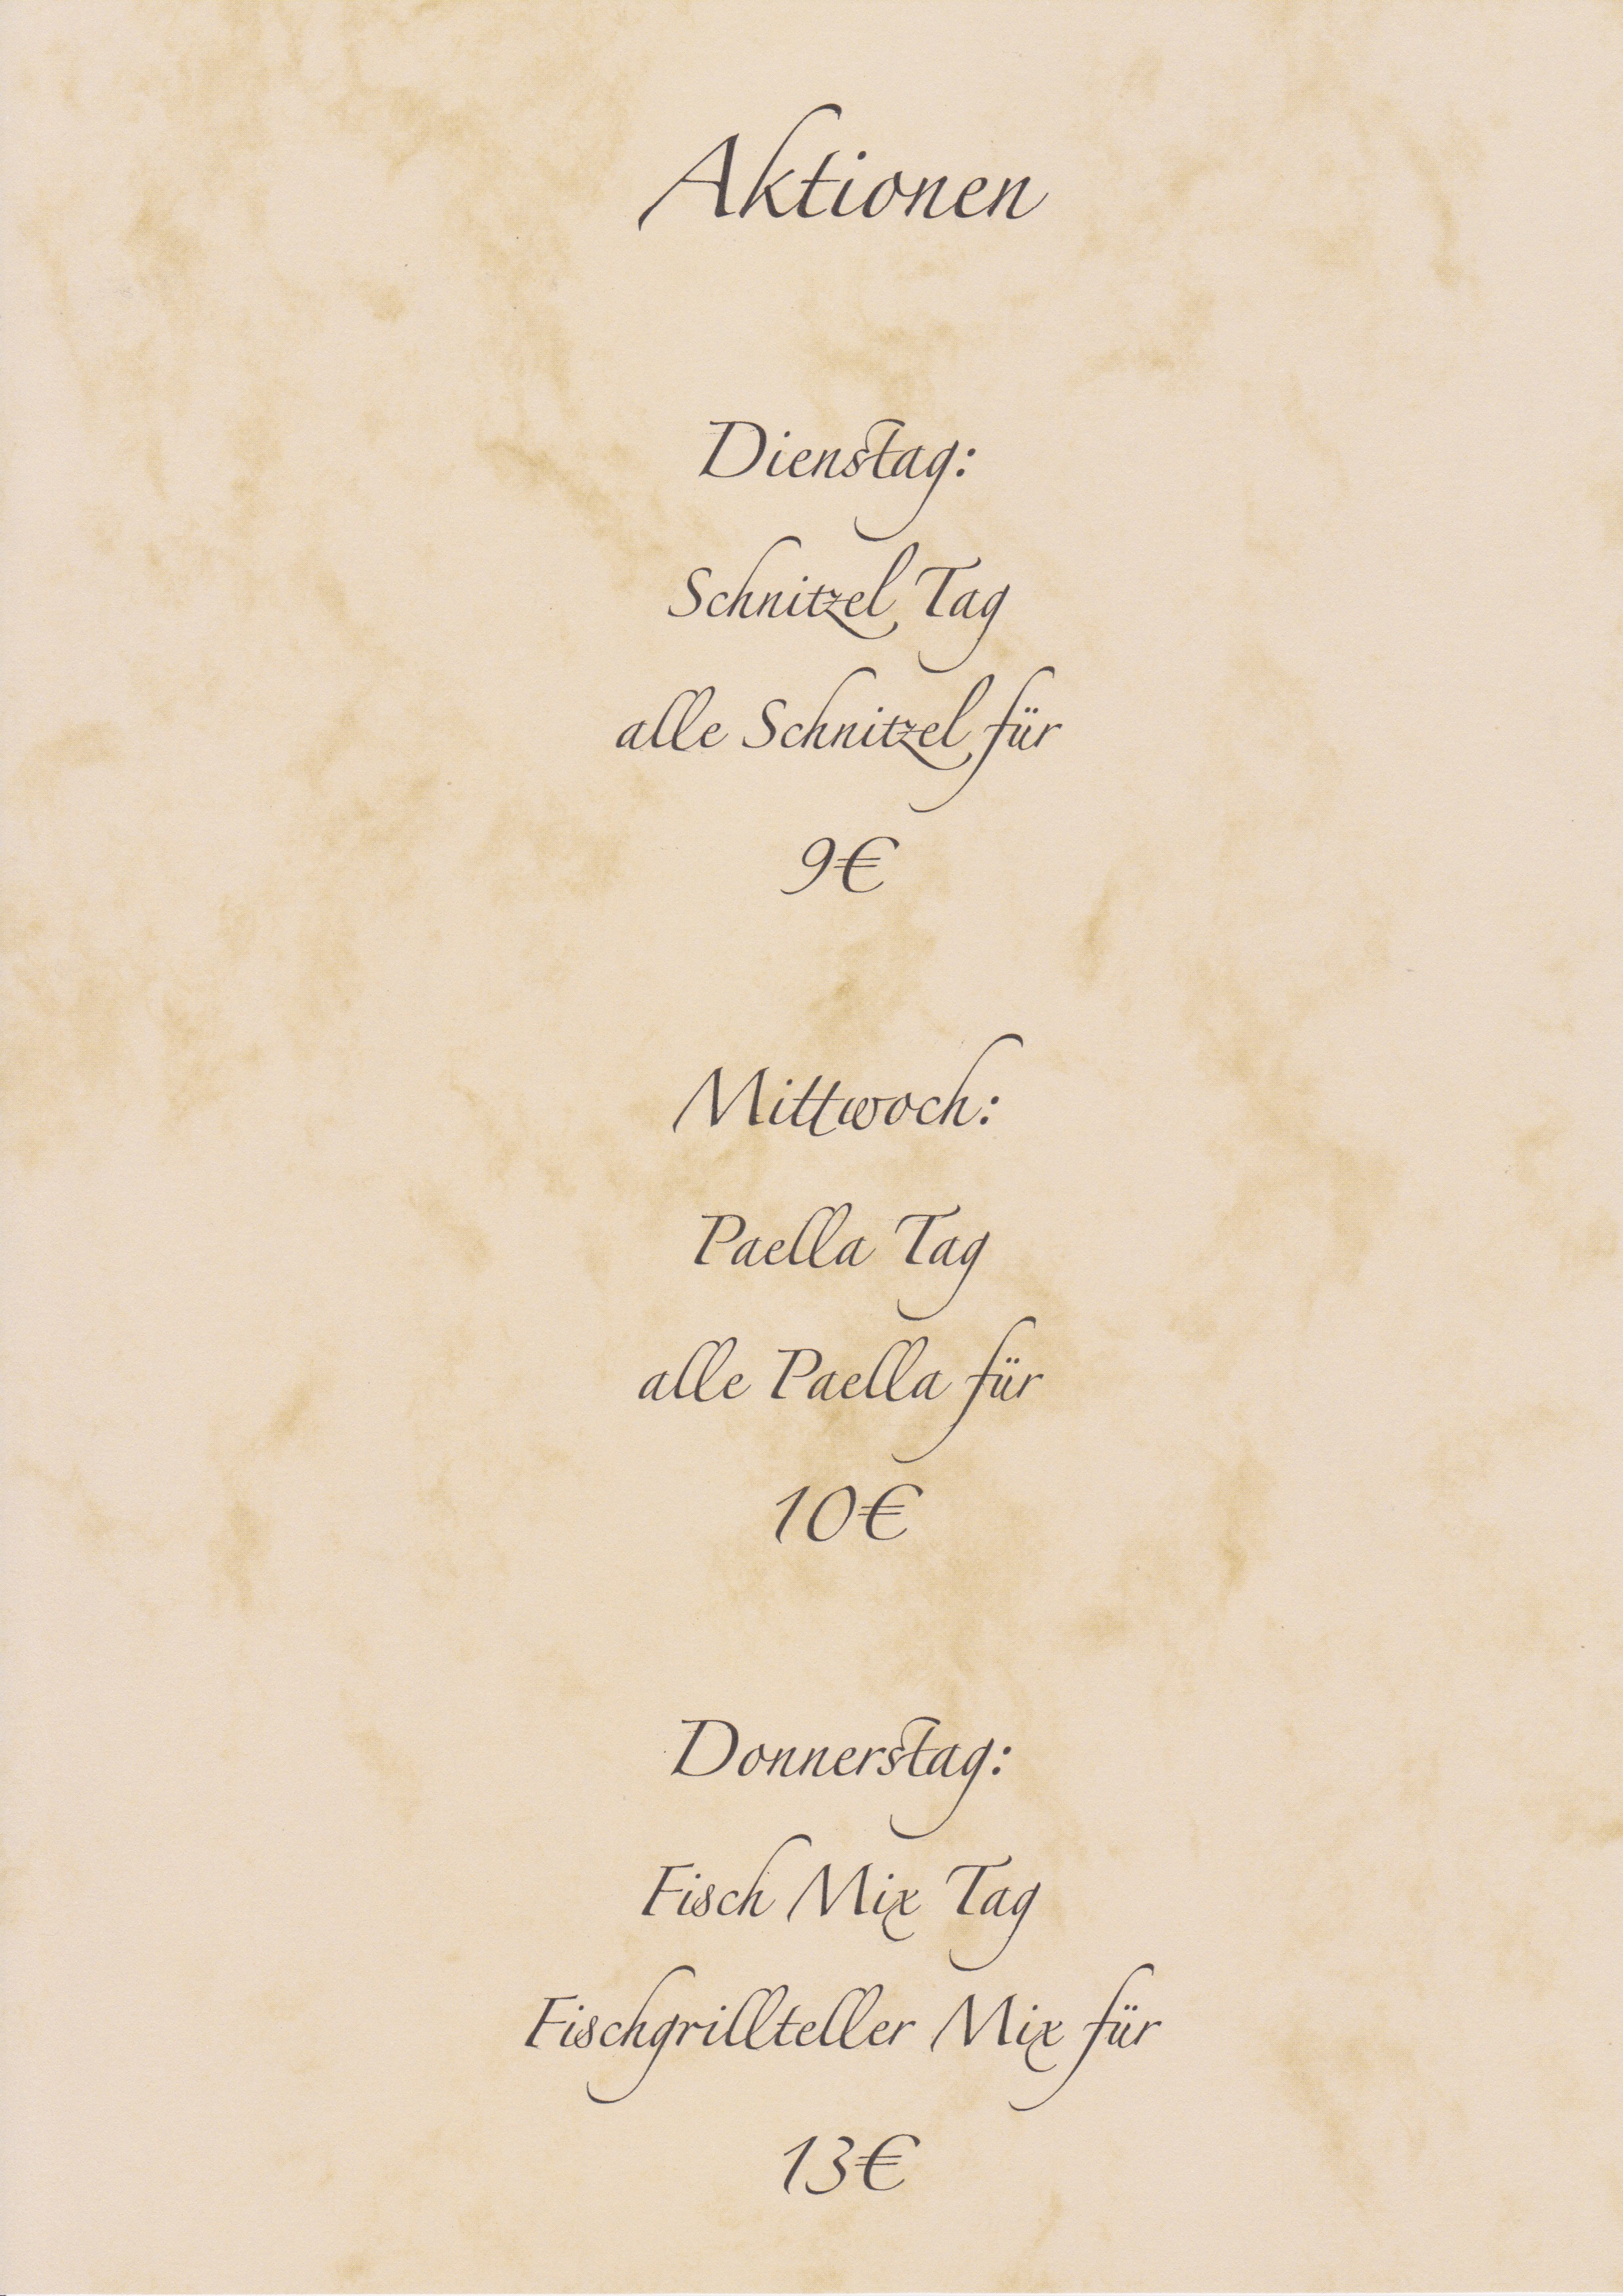 Aktionen
Dienstag:
Schnitzel Tag
alle Schnitzel für
9€
Mittwoch:
Paella Tag
alle Paella für
10€
Donnerstag:
Fisch Mix Tag
Fischgrillteller Mix für
13€